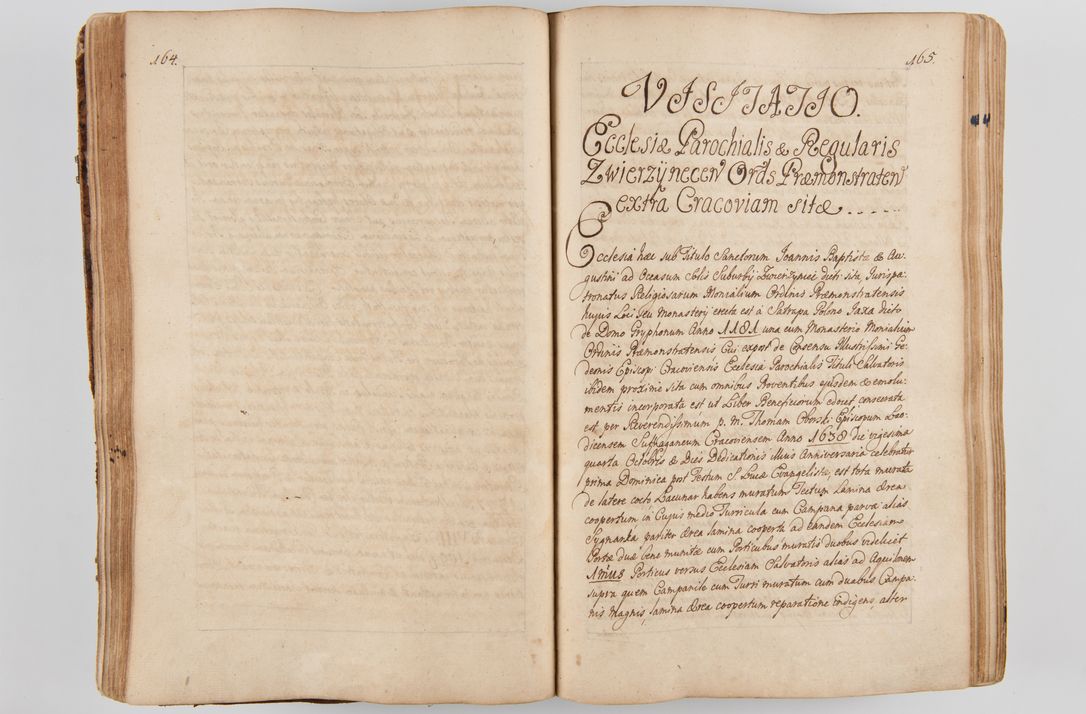 164.
165.
VISITATIO.
Ecclesiæ Parochialis & Regularis
Zwierzÿnecen Ords Præmonstraten
extra Cracoviam sitæ.....
Ecclesia hæc sub Titulo Sanctorum Joannis Baptistæ & Au,
gustini ad Occasum Solis Suburbij Zwierzyniec dicti sita, Jurispa,
tronatus Religiosarum Monialium Ordinis Præmonstratensis
hujus Loci seu Monasterij erecta est à Satrapa Polono Jaxa dicto
de Domo Gryphonum Anno 1181 una cum Monasterio Monialium
Ordinis Præmonstratensis Cui expost de Consensu Illustrissimi Ge,
deonis Episcopi Cracoviensis Ecclesia Parochialis Tituli Salvatoris
ibidem proxime sita cum omnibus Proventibus ejusdem & emolu,
mentis incorporata est ut Liber Beneficiorum edocet consecrata
est per Reverendissimum p. m. Thomam Oborski Episcopum Lao,
dicensem Suffraganeum Cracoviensem Anno 1638 die vigesima
quarta Octobris & Dies Dedicationis illius Anniversaria celebratur
prima Dominica post Festum S. Lucæ Evangelistæ, est tota murata
de latere cocto Lacunar habens muratum Tectum Lamina Ærea
coopertum in Cujus medio Turricula cum Campana parva alias
Sygnarka pariter Ærea lamina cooperta ad eandem Ecclesiam
Portæ duæ bene munitæ cum Porticubus muratis duobus videlicet
1mus Porticus versus Ecclesiam Salvatoris alias ad Aquilonem
supra quem Campanile cum Turri muratum cum duabus Campa,
nis magnis, lamina Ærea coopertum reparatione indigens, alter